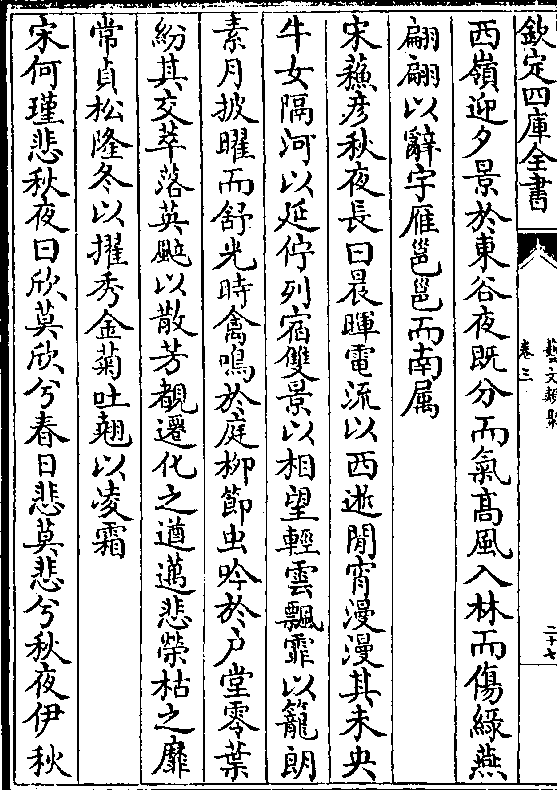 欽定四庫全書
藝文類聚
卷三
二十七
西嶺迎夕景於東谷夜既分而氣髙風入林而傷緑燕
翩翩以辭宇雁邕邕而南属
宋蘓彦秋夜長曰晨暉電流以西逝閒宵漫漫其未央
牛女隔河以延佇列宿雙景以相望輕雲飄霏以籠朗
素月披曜而舒光時禽鳴於庭柳節虫吟於户堂零葉
紛其交萃落英颭以散芳覩遷化之遒邁悲榮枯之靡
常貞松隆冬以擢秀金菊吐翹以凌霜
宋何瑾悲秋夜曰欣莫欣兮春日悲莫悲兮秋夜伊秋